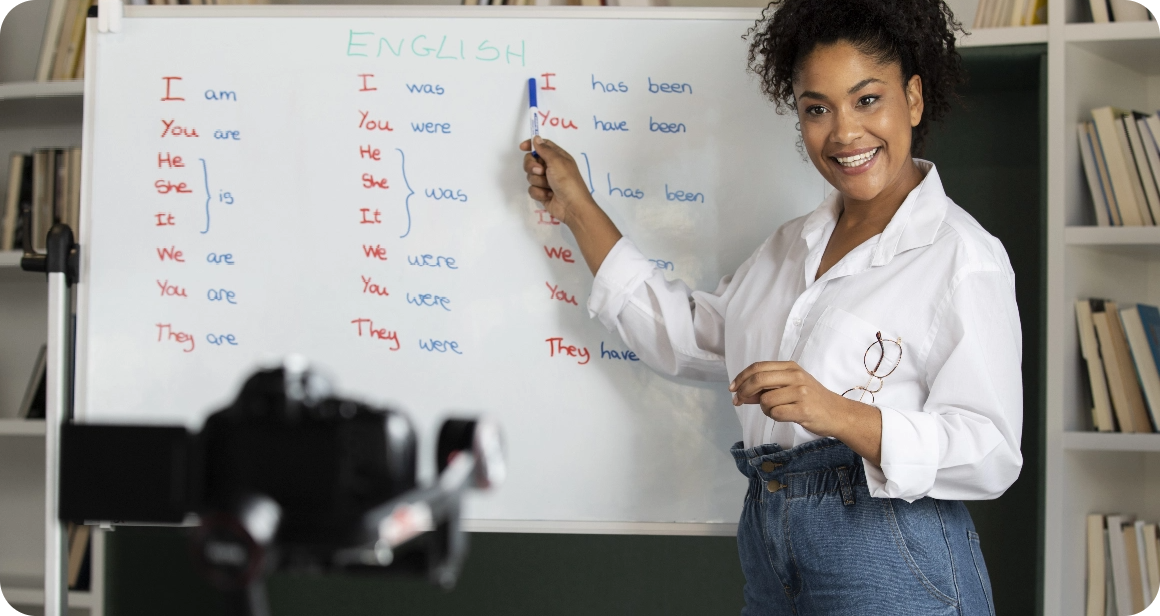 ENGLISH
I am
You are
He
She
It
is
We are
You are
They are
I was
You were
He
She
It
was
We were
You were
They were
I has been
You have been
has been
It
We
You
They have